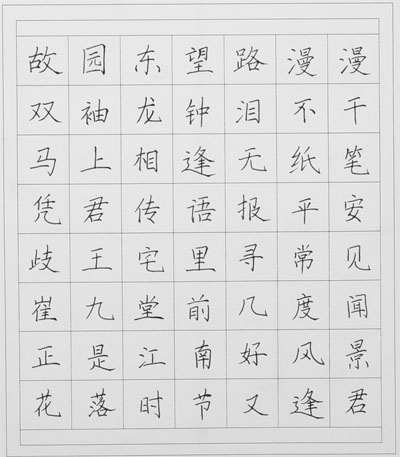 故园东望路漫漫
双袖龙钟泪不干
马上相逢无纸笔
凭君传语报平安
歧王宅里寻常见
崔九堂前几度闻
正是江南好风景
花落时节又逢君